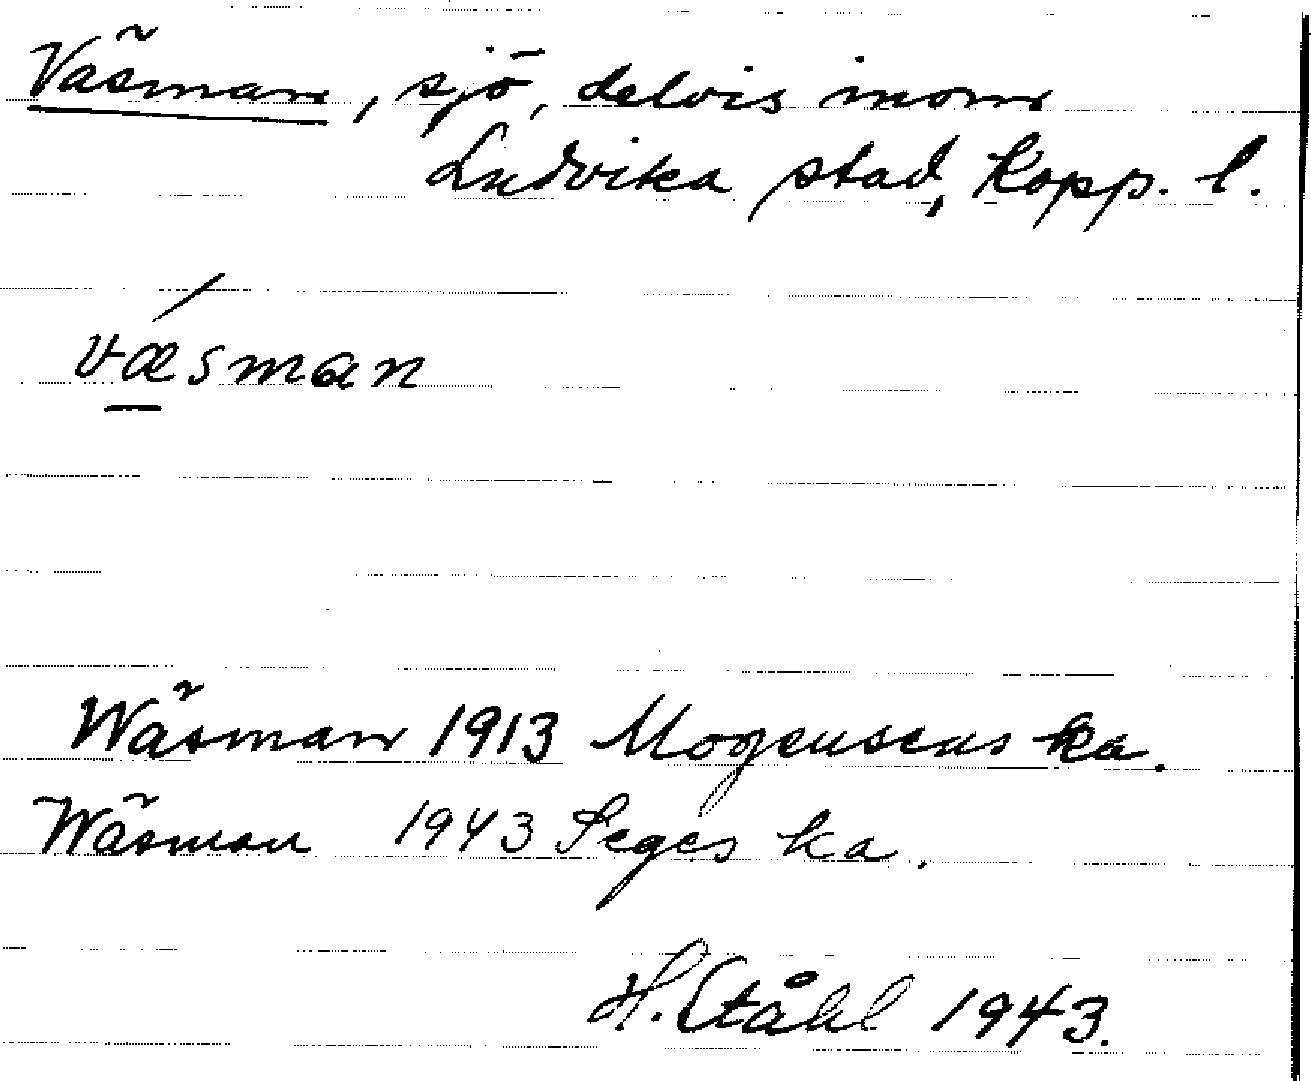 Väsman, sjö, delvis inom
Ludvika stad, Kopp. l.
væsman
Wäsman 1913 Mogensens ka.
Wäsman 1943 Seges ka.
H. Ståhl 1943.